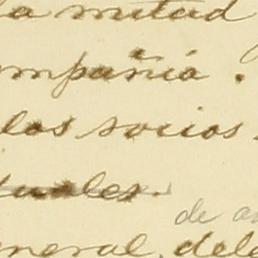 la mitad
compañia.
los socios
tuales.
de a
neral, dele